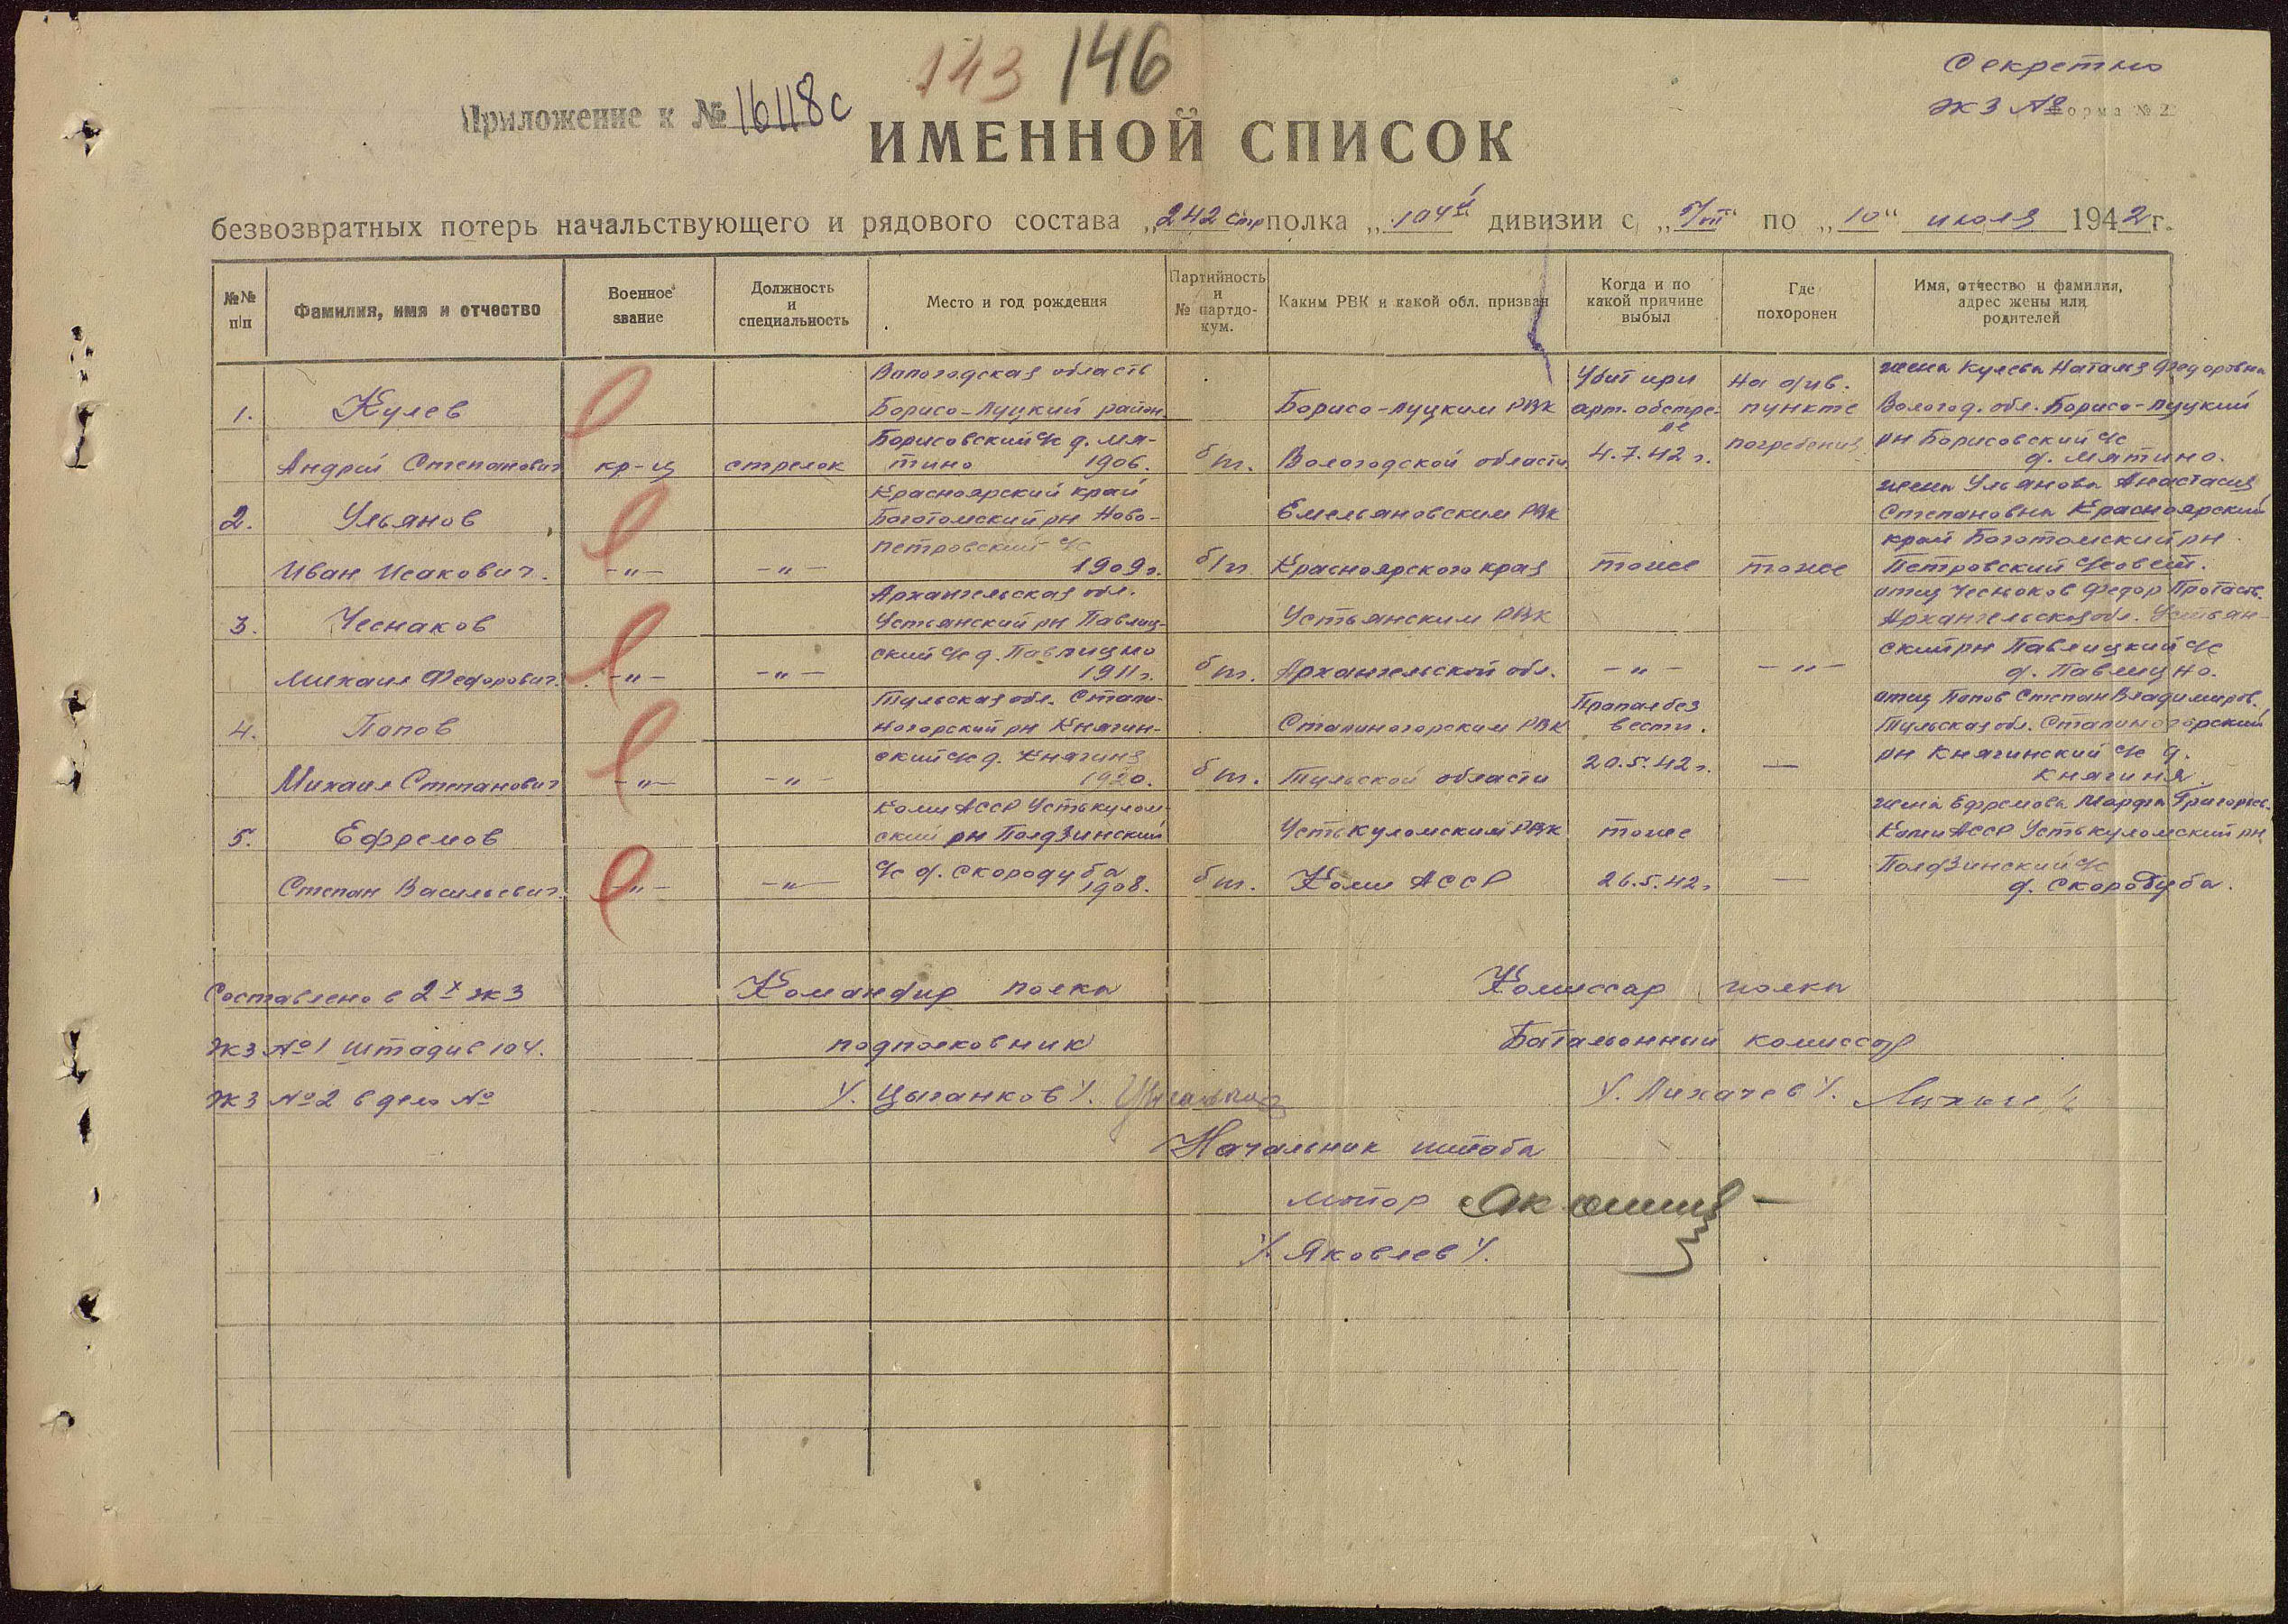 143 146
Секретно
Экз №
Форма № 2
Приложение к № 16118с
ИМЕННОЙ СПИСОК
безвозвратных потерь начальствующего и рядового состава „242 стр полка „104й дивизии с „5/VII“ по „10“ июля 1942 г.
№№ п/п
Фамилия, имя и отчество
Военное звание
Должность и специальность
Место и год рождения
Партийность и № партдокум.
Каким РВК и какой обл. призван
Когда и по какой причине выбыл
Где похоронен
Имя, отчество и фамилия, адрес жены или родителей
1.
Кулев
Андрей Степанович
кр-ц
стрелок
Вологодская область
Борисо-Луцкий район
Борисовский с/с д. Мя-
тино 1906.
б/п.
Борисо-Луцким РВК
Вологодской области
Убит при
арт. обстре-
ле
4.7.42 г.
На див.
пункте
погребения
жена Кулева Наталья Федоровна
Вологод. обл. Борисо-Луцкий
рн Борисовский с/с
д. Мятино.
2.
Ульянов
Иван Исакович.
-"-
-"-
Красноярский край
Боготомский рн Ново-
петровский с/с
1909 г.
б/п
Емельяновским РВК
Красноярского края
тоже
тоже
жена Ульянова Анастасия
Степановна Красноярский
край Боготомский рн
Петровский с/совет.
3.
Чеснаков
Михаил Федорович.
-"-
-"-
Архангельская обл.
Устьянский рн Павлиц-
ский с/с д. Павлицно
1911 г.
б/п.
Устьянским РВК
Архангельской обл.
-"-
-"-
отец Чесноков Федор Протасв.
Архангельская обл. Устьян-
ский рн Павлицкий с/с
д. Павлицно.
4.
Попов
Михаил Степанович
-"-
-"-
Тульская обл. Стали-
ногорский рн Княгин-
ский с/с д. Княгиня
1920.
б/п.
Сталиногорским РВК
Тульской области
Пропал без
вести.
20.5.42 г.
—
отец Попов Степан Владимиров.
Тульская обл. Сталиногорский
рн Княгинский с/с д.
Княгиня.
5.
Ефремов
Степан Васильевич.
-"-
-"-
Коми АССР Устькулом-
ский рн Полдзинский
с/с д. Скородуба
1908.
б/п.
Устькуломским РВК
Коми АССР
тоже
26.5.42 г
—
жена Ефремова Марфа Григорьев.
Коми АССР Устькуломский рн
Полдзинский с/с
д. Скородуба.
Составлено в 2х экз
Командир полка
Комиссар полка
Экз №1 Штадив 104.
подполковник
Батальонный комиссар
Экз №2 в дело №
/. Цыганков /.
/. Лихачев /.
Начальник штаба
майор
/. Яковлев /.